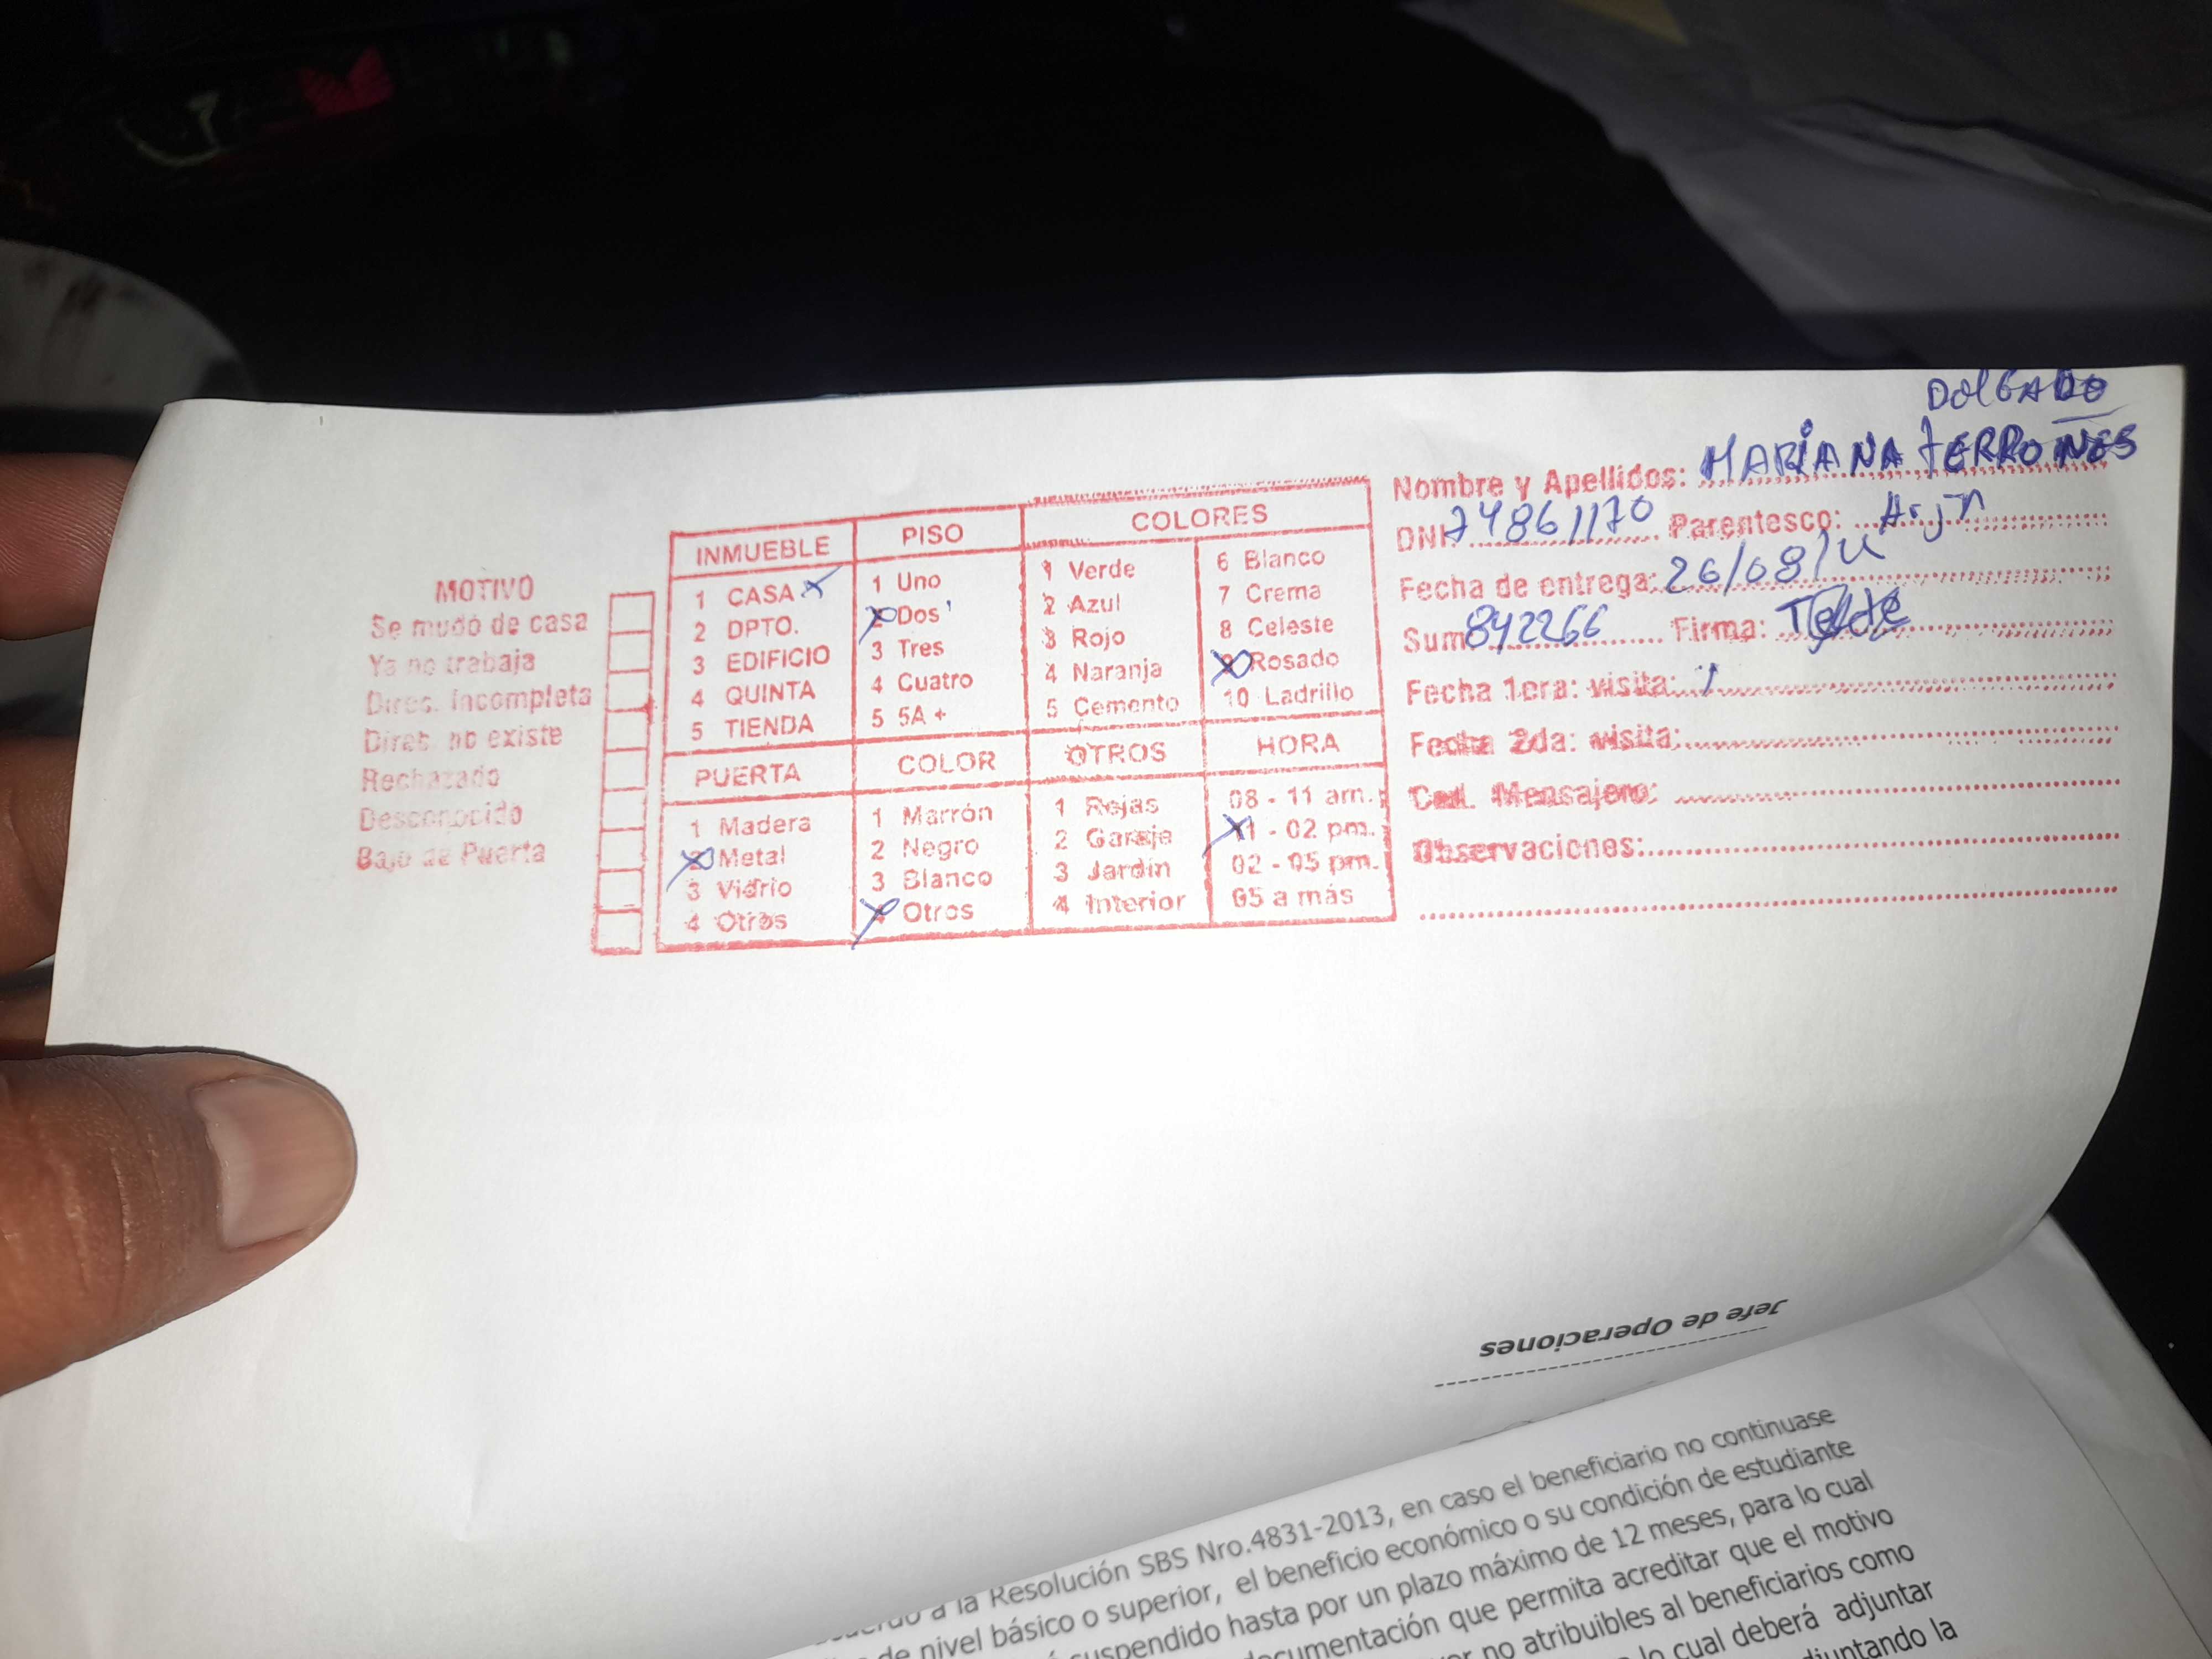 DOLGADO
Nombre y Apellidos: MARIANA TERRONES
DNI: 74861170 Parentesco:
Fecha de entrega: 26/08/
Sum: 842266 Firma:
Fecha 1era: visita: 1
Fecha 2da: visita:
Cod. Mensajero:
Observaciones:
MOTIVO
Se mudó de casa
Ya no trabaja
Direc. Incompleta
Direc. no existe
Rechazado
Desconocido
Bajo de Puerta
INMUEBLE
1 CASA X
2 DPTO.
3 EDIFICIO
4 QUINTA
5 TIENDA
PISO
1 Uno
2 Dos
3 Tres
4 Cuatro
5 5A +
COLORES
1 Verde
2 Azul
3 Rojo
4 Naranja
5 Cemento
6 Blanco
7 Crema
8 Celeste
9 Rosado
10 Ladrillo
PUERTA
1 Madera
2 Metal
3 Vidrio
4 Otros
COLOR
1 Marrón
2 Negro
3 Blanco
4 Otros
OTROS
1 Rejas
2 Garaje
3 Jardín
4 Interior
HORA
08 - 11 am.
11 - 02 pm.
02 - 05 pm.
05 a más
Jefe de Operaciones
a la Resolución SBS Nro.4831-2013, en caso el beneficiario no continuase
de nivel básico o superior, el beneficio económico o su condición de estudiante
suspendido hasta por un plazo máximo de 12 meses, para lo cual
documentación que permita acreditar que el motivo
no atribuibles al beneficiarios como
lo cual deberá adjuntar
la